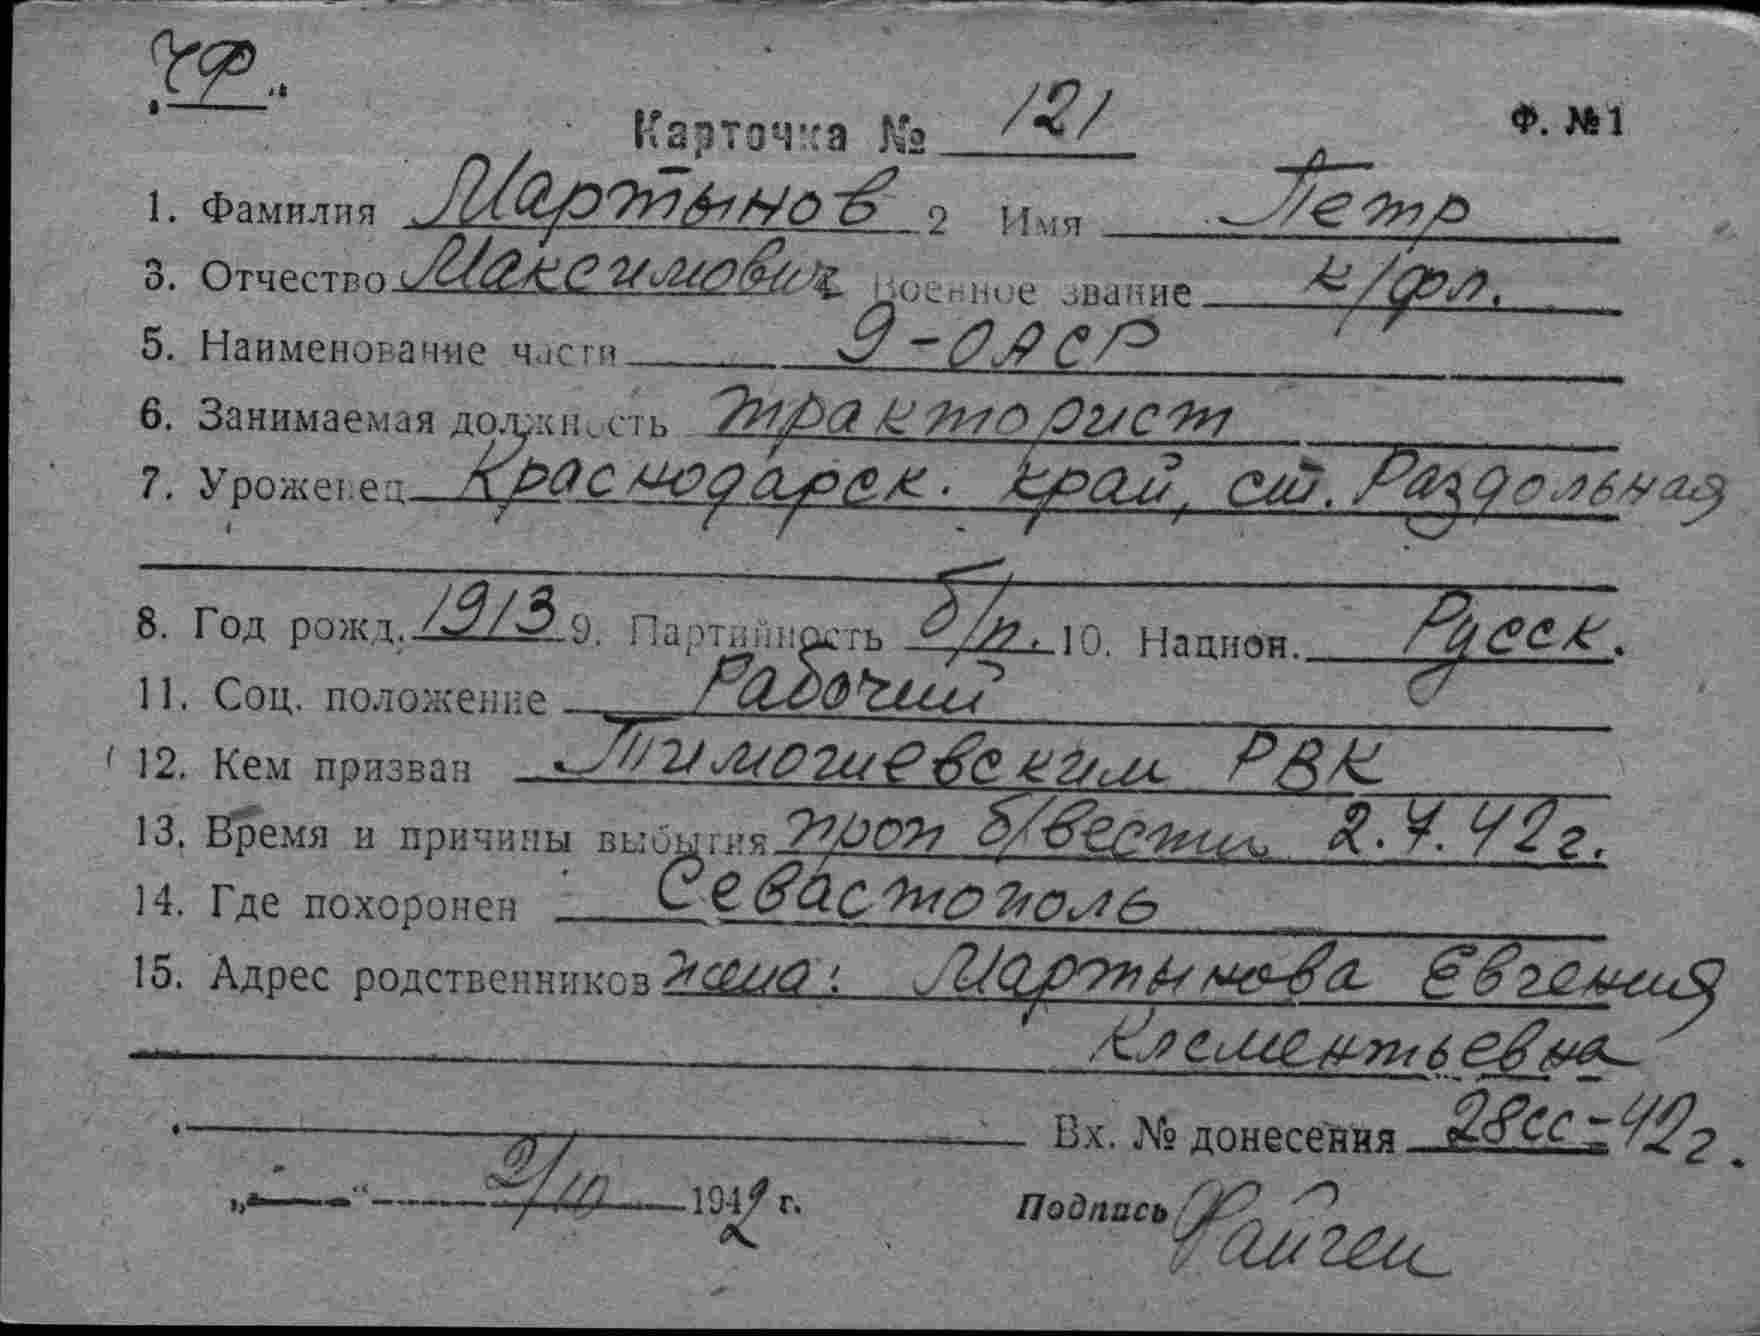 ЧФ.
Карточка № 121 Ф. №1
1. Фамилия Мартынов 2 Имя Петр
3. Отчество Максимович Военное звание к/фл.
5. Наименование части 9-ОАСР
6. Занимаемая должность тракторист
7. Уроженец Краснодарск. край, ст. Раздольная
8. Год рожд. 1913 9. Партийность б/п. 10. Национ. Русск.
11. Соц. положение Рабочий
12. Кем призван Тимошевским РВК
13. Время и причины выбытия проп б/вести 2.7.42г.
14. Где похоронен Севастополь
15. Адрес родственников жена: Мартынова Евгения
Клементьевна
Вх. № донесения 28сс-42г.
„ “ 9/10 1942 г. Подпись